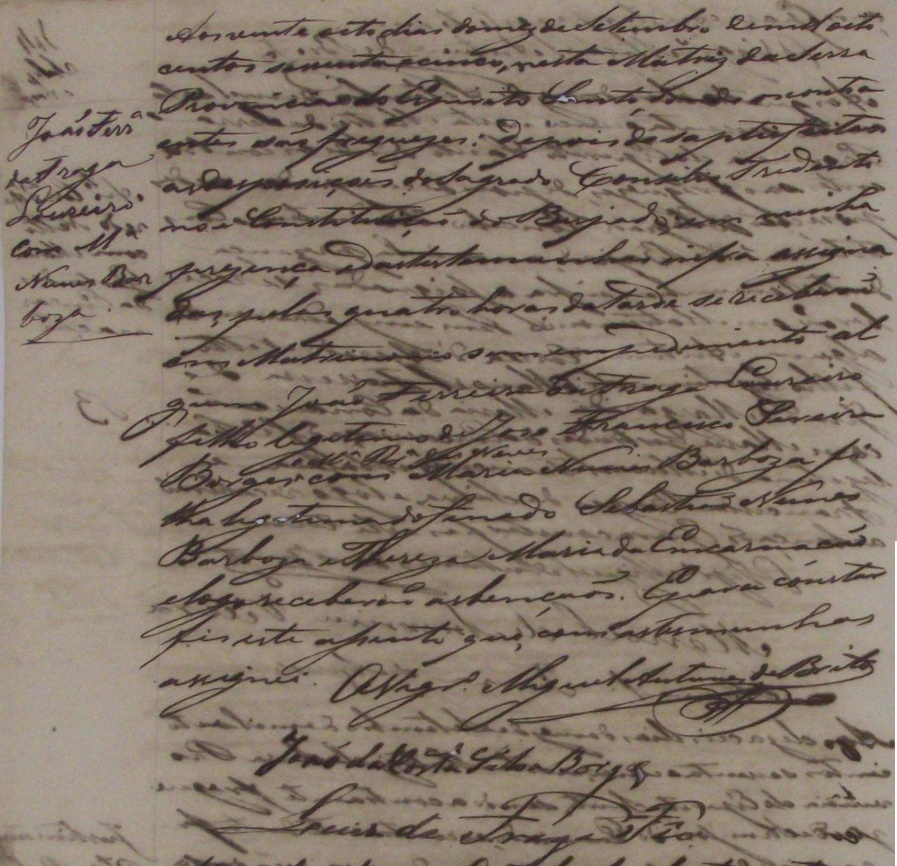 João Ferr.ª
de Fraga
Loureiro
com M.ª
Nunes Bar
boza
Aos vinte oito dias do mez de Setembro de mil oito
centos secenta e cinco, nesta Matriz da Serra
Provincia do Espirito Santo donde os contra
entes são freguezes. Depois de se ter feitas
as desposições do Sagrado Concilio Tridenti
no e Constituição do Bispado, em minha
presença e das testemunhas infra assigna
das, pelas quatro horas da tarde se receberão
em Matrimonio sem impedimento al
gum João Ferreira de Fraga Loureiro
filho legitimo de José Francisco Pereira
Borges com Maria Nunes Barboza fi
lha legitima do finado Sebastião Nunes
Barboza e Thereza Maria da Encarnação
e logo receberão as bençaõs. E para constar
fis este assento que, com as testemunhas
assignei. O Vigr.º Miguel Antunes de Britto
João da Costa Silva Borges
Luiz de Fraga